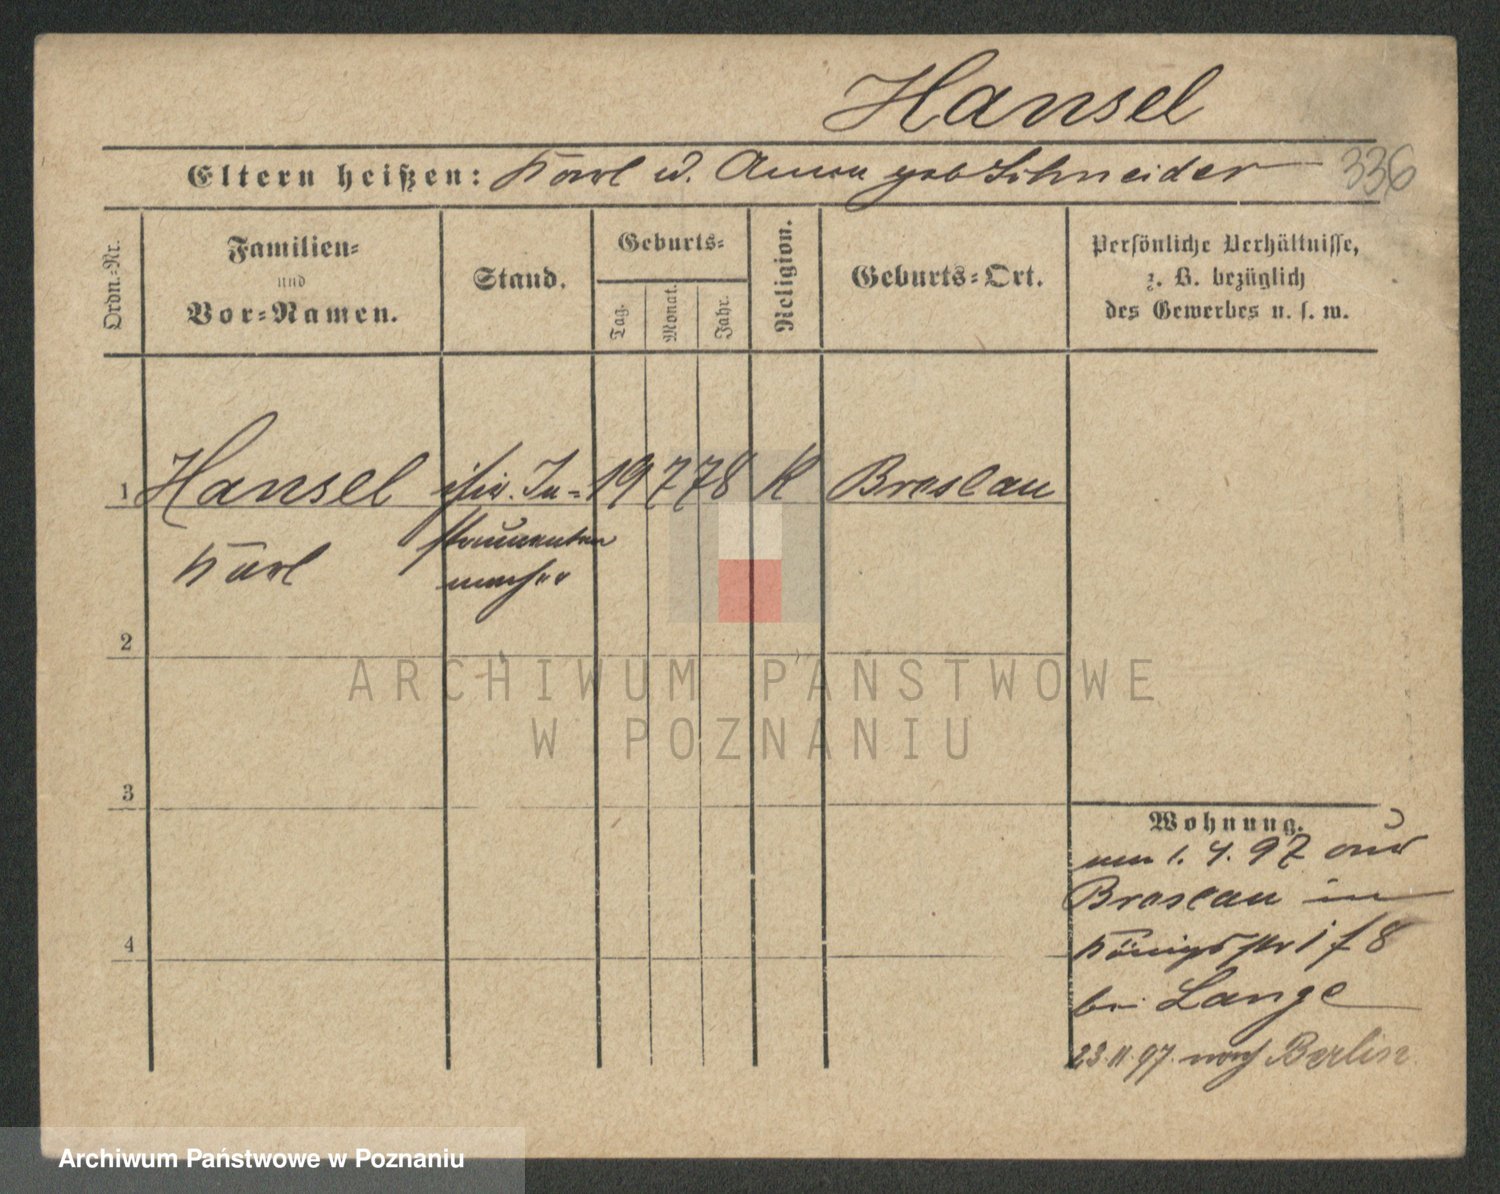 Hansel
Eltern heißen: Karl u. Anna geb Schneider 336
Ordn.=Nr.
Familien=
und
Vor=Namen.
Stand.
Geburts=
Tag.
Monat.
Jahr.
Religion.
Geburts=Ort.
Persönliche Verhältnisse,
z. B. bezüglich
des Gewerbes u. s. w.
1 Hansel chir. In= 19 7 78 K Breslau
Karl
strumenten
macher
2
3
4
Wohnung.
am 1. 4. 97 aus
Breslau in
Königsstr 18
bei Lange
23.11.97. nach Berlin
ARCHIWUM PAŃSTWOWE
W POZNANIU
Archiwum Państwowe w Poznaniu